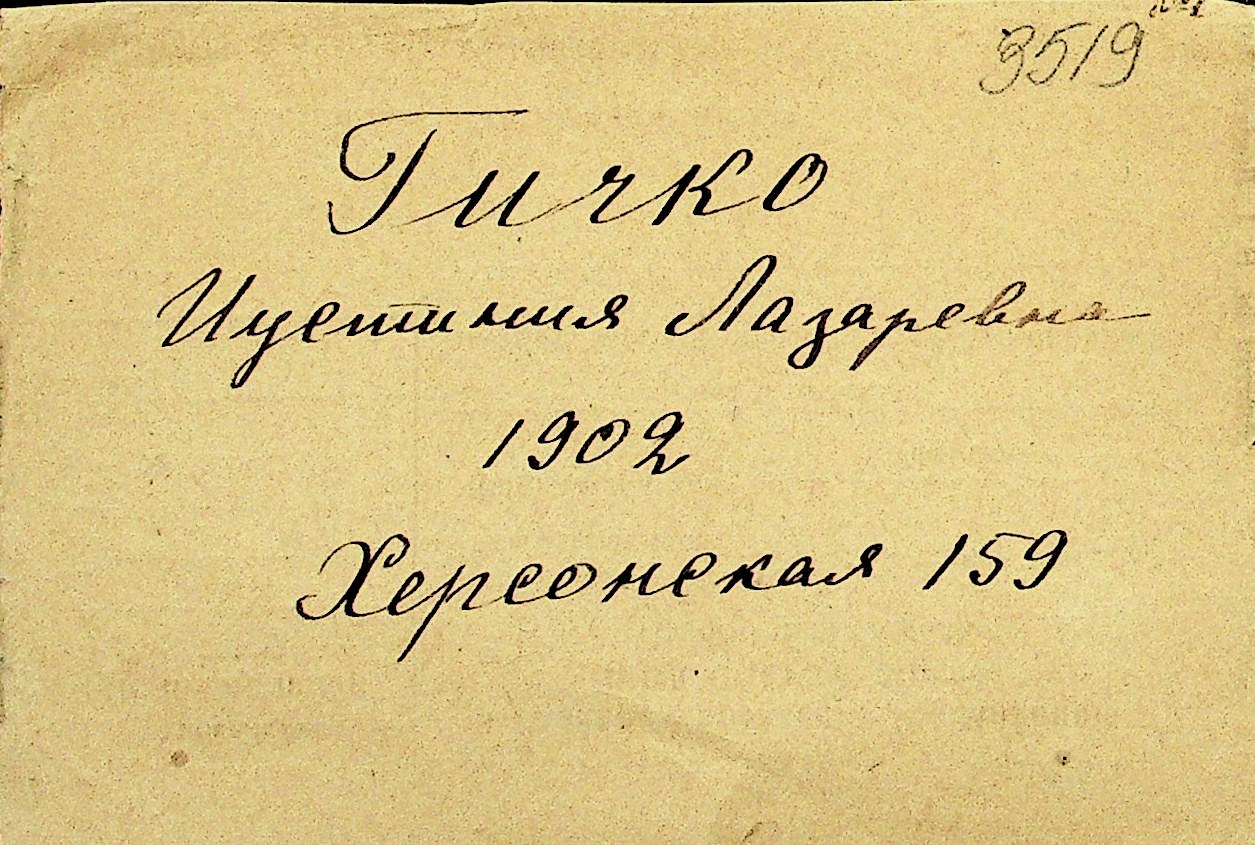 3519
Гичко
Иустиния Лазаревна
1902
Херсонская 159